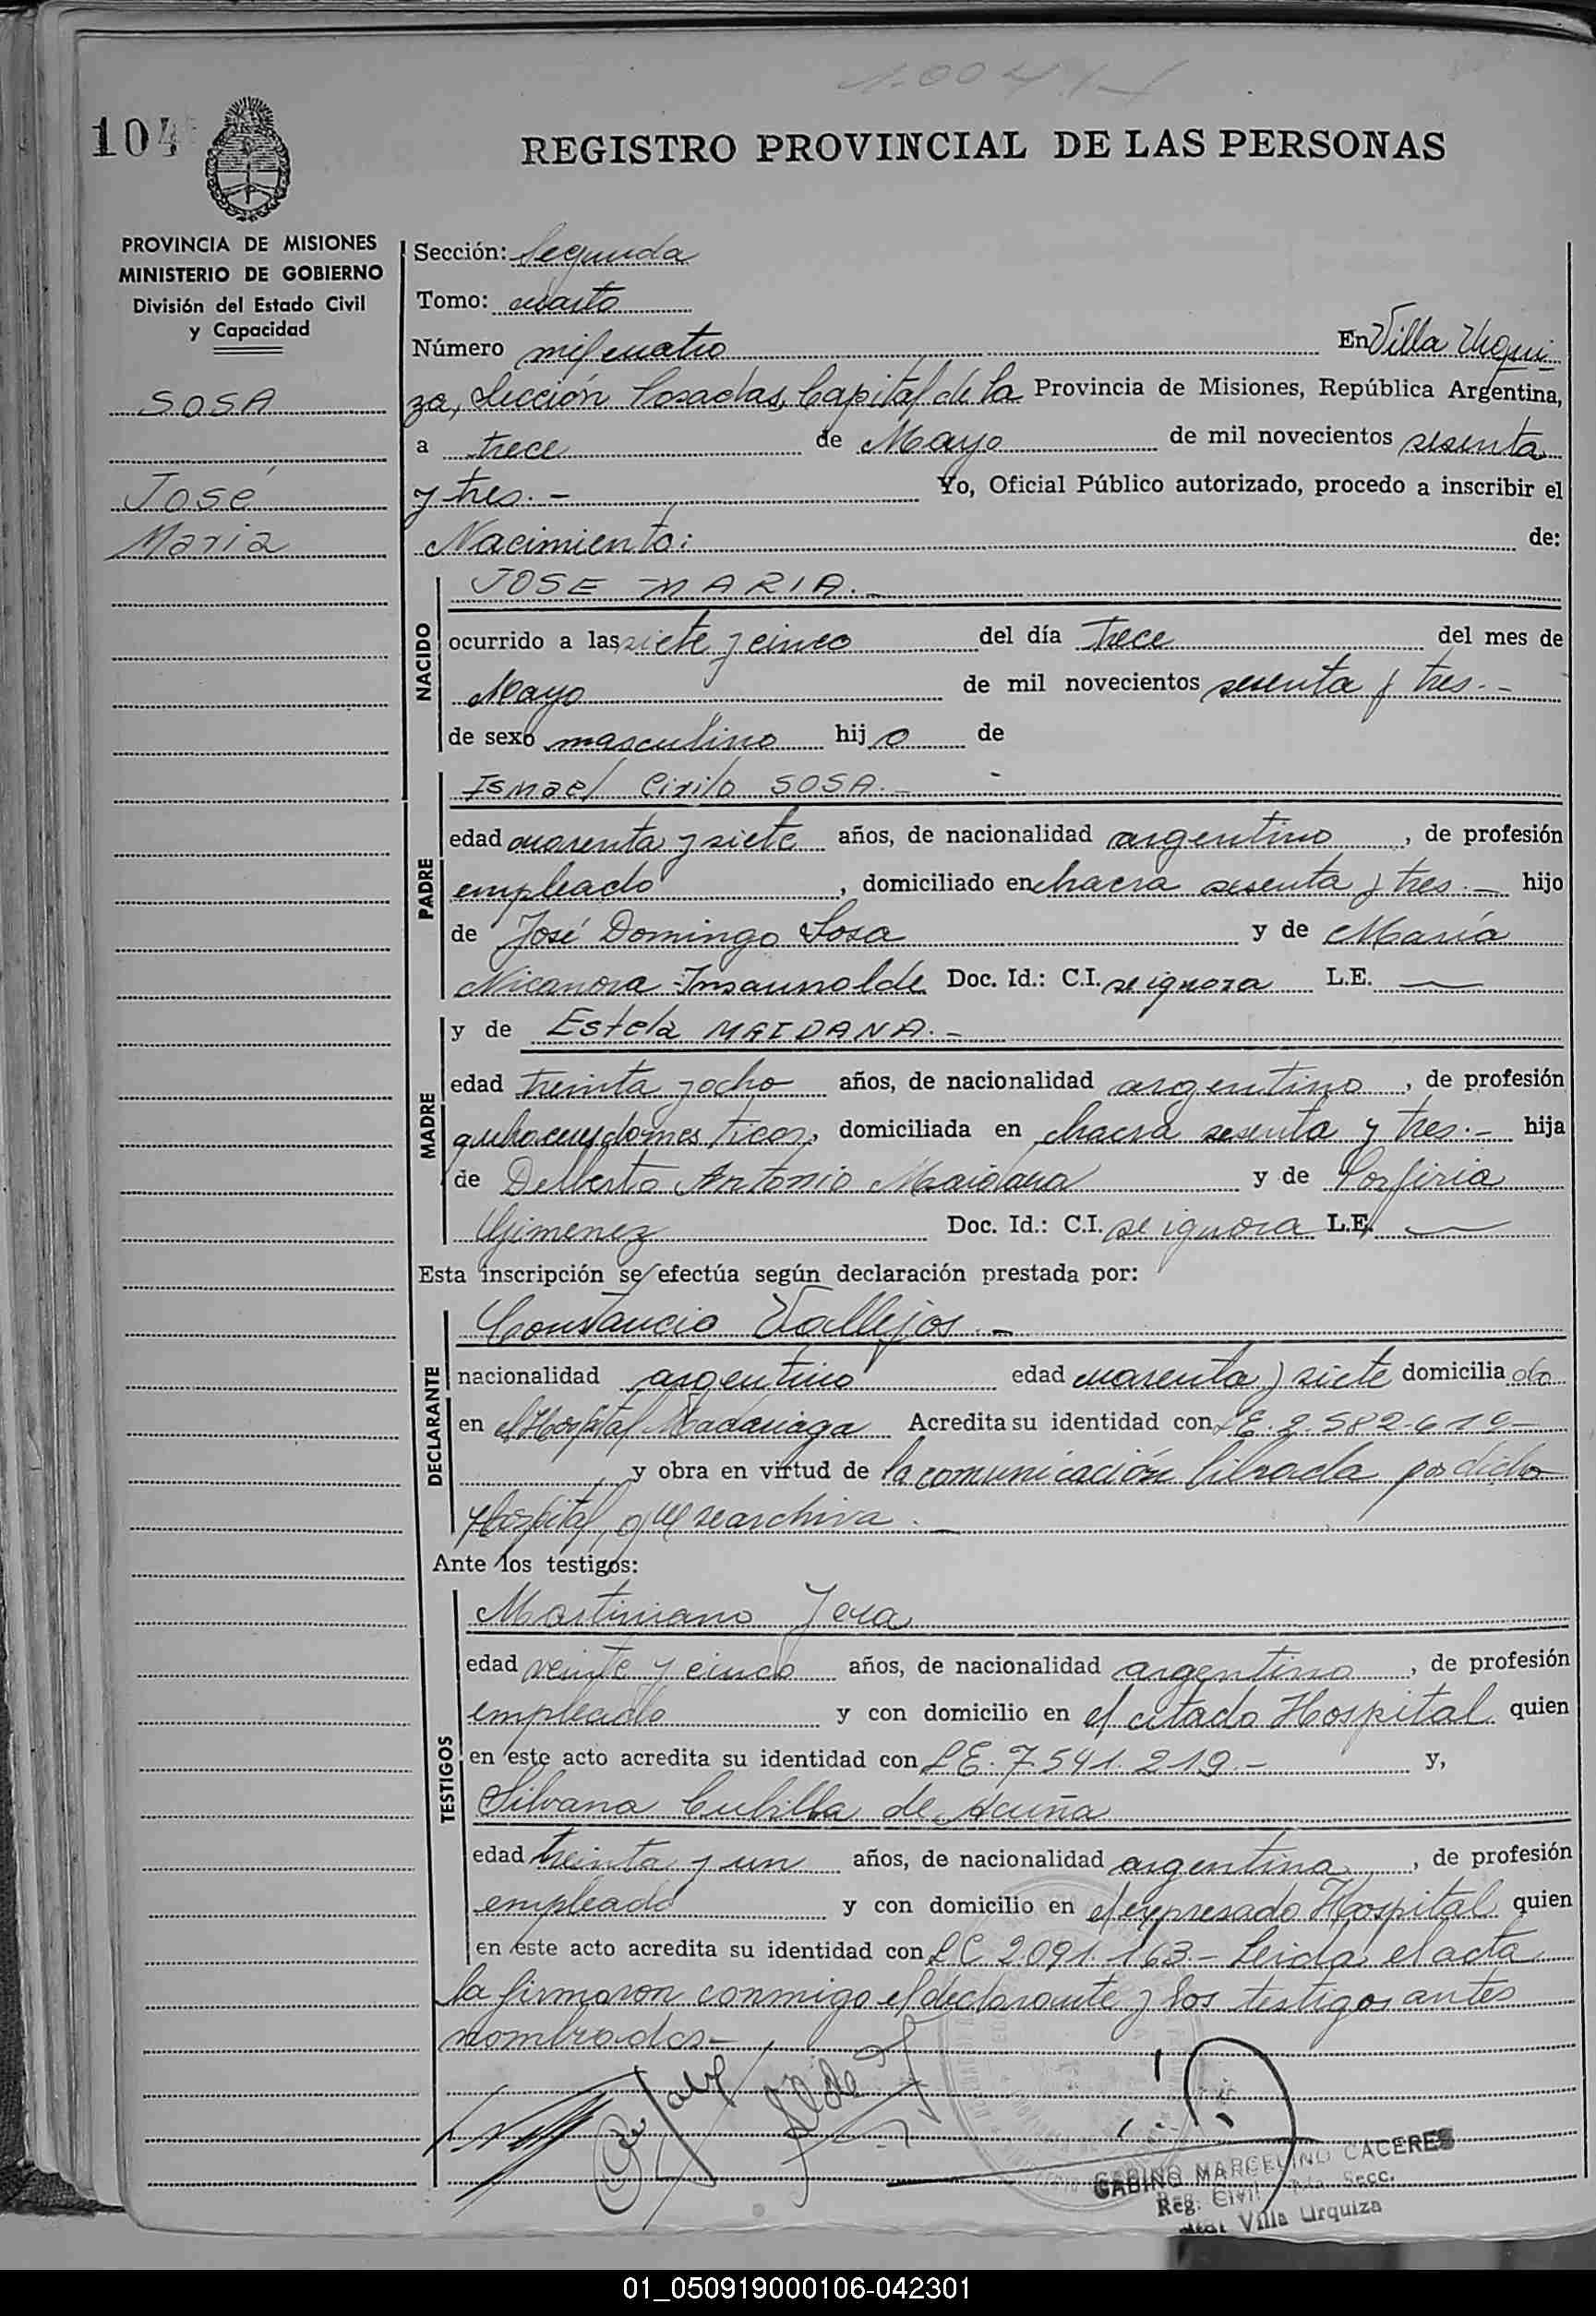 104
REGISTRO PROVINCIAL DE LAS PERSONAS
PROVINCIA DE MISIONES
MINISTERIO DE GOBIERNO
División del Estado Civil
y Capacidad
SOSA
José
Maria
Sección: Segunda
Tomo: cuarto
Número mil cuatro En Villa Urqui
za, Sección Posadas, Capital de la Provincia de Misiones, República Argentina,
a trece de Mayo de mil novecientos sesenta
y tres.- Yo, Oficial Público autorizado, procedo a inscribir el
Nacimiento: de:
NACIDO
JOSE MARIA.-
ocurrido a las siete y cinco del día trece del mes de
Mayo de mil novecientos sesenta y tres.-
de sexo masculino hijo de
PADRE
Ismael Cirilo SOSA.-
edad cuarenta y siete años, de nacionalidad argentino, de profesión
empleado, domiciliado en chacra sesenta y tres.- hijo
de José Domingo Sosa y de María
Nicanora Insaurralde Doc. Id.: C.I. se ignora L.E. —
MADRE
y de Estela MAIDANA.-
edad treinta y ocho años, de nacionalidad argentina, de profesión
quehaceres domesticos, domiciliada en chacra sesenta y tres.- hija
de Delberto Antonio Maidana y de Porfiria
Gimenez Doc. Id.: C.I. se ignora L.E. —
Esta inscripción se efectúa según declaración prestada por:
DECLARANTE
Constancio Vallejos.-
nacionalidad argentino edad cuarenta y siete domiciliado
en el Hospital Madariaga Acredita su identidad con L.E. 2.582.619-
y obra en virtud de la comunicación librada por dicho
Hospital, que se archiva.-
Ante los testigos:
TESTIGOS
Martiniano Jara
edad veinte y cinco años, de nacionalidad argentino, de profesión
empleado y con domicilio en el citado Hospital quien
en este acto acredita su identidad con L.E. 7.541.219.- y,
Silvana Cubilla de Acuña
edad treinta y un años, de nacionalidad argentina, de profesión
empleada y con domicilio en el expresado Hospital quien
en este acto acredita su identidad con L.C. 2.091.163.- Leida el acta
la firmaron conmigo el declarante y los testigos antes
nombrados.-
GABINO MARCELINO CACERES
Reg. Civil Secc.
Villa Urquiza
01_050919000106-042301